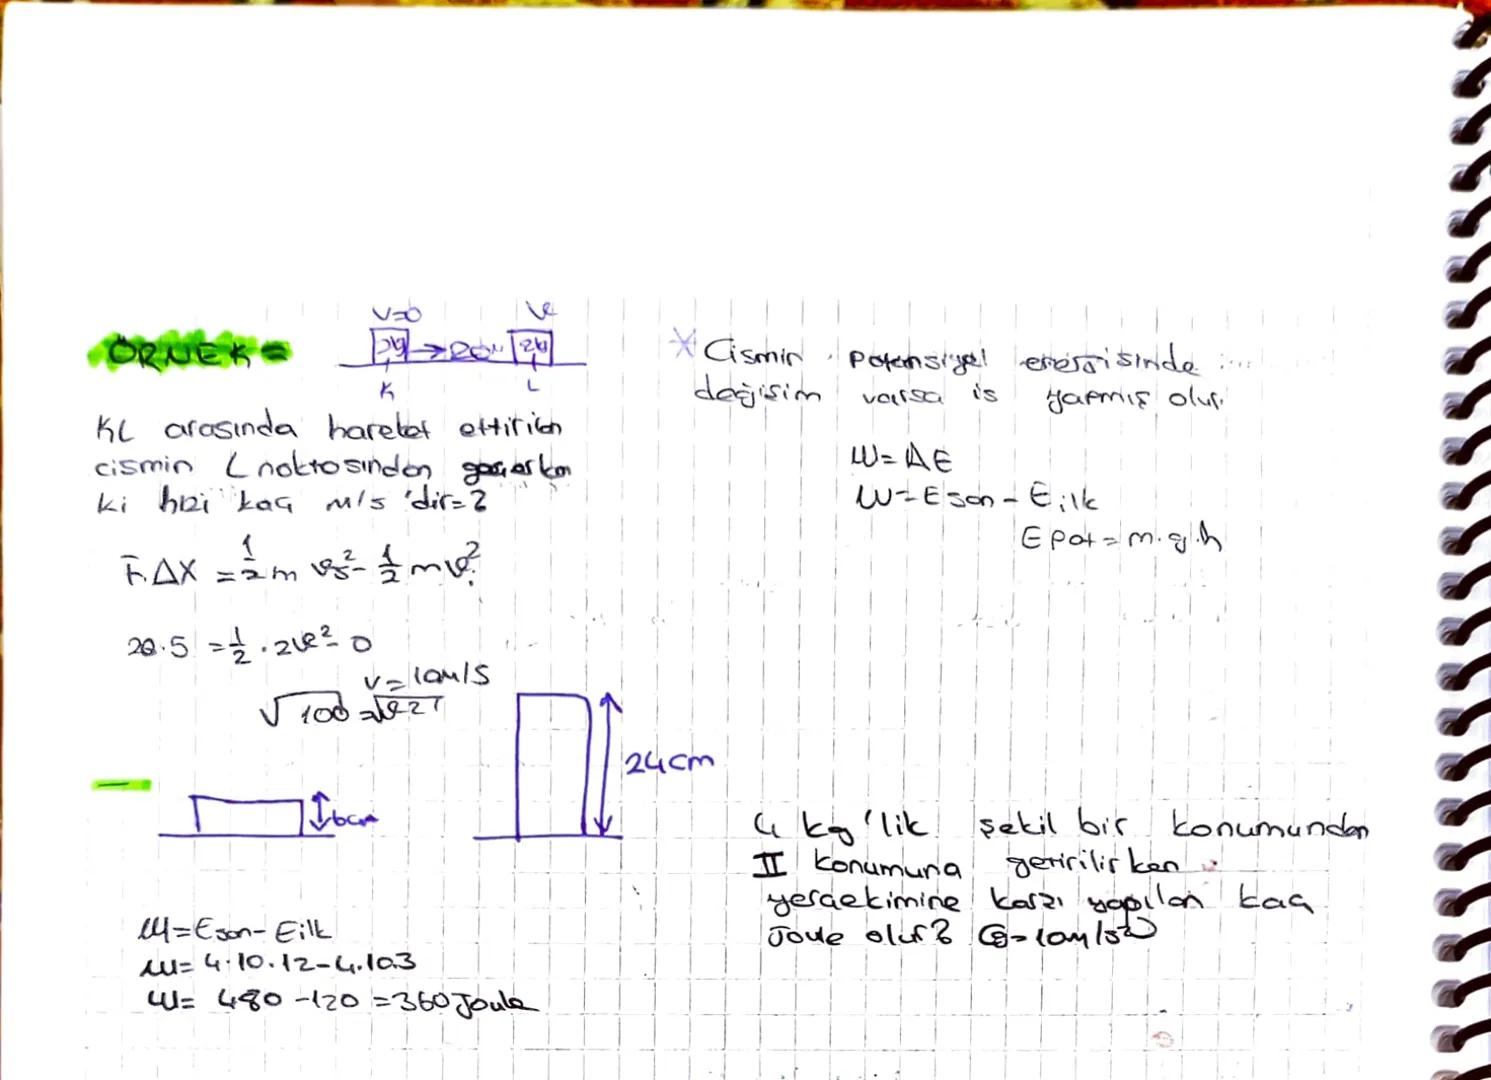 ÖRNEK=
V=0 V
2kg → 20N 2kg
K L
KL arasında hareket ettirilen
cismin L noktasından geçerken
ki hızı kaç m/s 'dir=?
F.ΔX = 1/2 m vs² - 1/2 m vi²
20.5 = 1/2 . 2v² - 0
v = 10m/s
√100 = √v²
6cm
24cm
W=Eson-Eilk
W= 4.10.12-4.10.3
W= 480 -120 =360 Joule
* Cismin potensiyel enerjisinde
değişim varsa iş yapmış olur.
W= ΔE
W=Eson - Eilk
Epot = m.g.h
4 kg'lik şekil bir konumundan
II konumuna getirilirken
yerçekimine karşı yapılan kaç
Joule olur? G=10m/s²